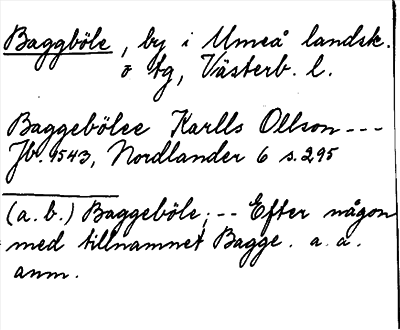 Baggböle, by i Umeå landsk.
o tg, Västerb. l.
Baggebölee Karlls Ollson ---
Jb. 1543, Nordlander 6 s. 295
(a. b.) Baggeböle; -- Efter någon
med tillnamnet Bagge. a. a.
anm.